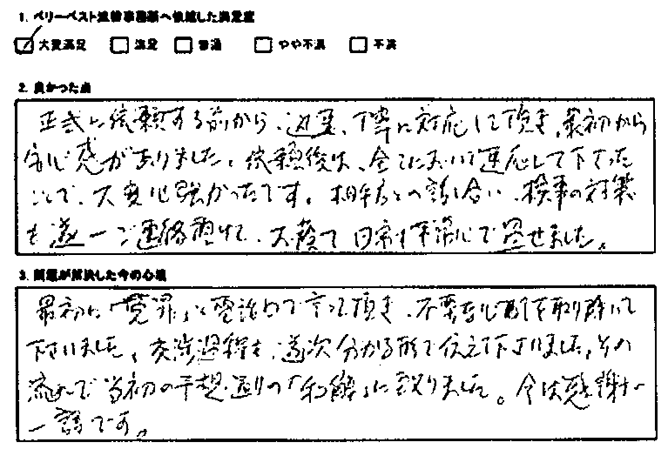 1. ベリーベスト法律事務所へ依頼した満足度
大変満足 満足 普通 やや不満 不満
2. 良かった点
正式に依頼する前から、迅速、丁寧に対応して頂き、最初から
安心感がありました。依頼後は、全てにおいて速応して下さった
ことで、大変心強かったです。相手方との話し合い、検事の対策
も逐一ご連絡頂けて、お蔭で日常を平常心で過せました。
3. 問題が解決した今の心境
最初に「冤罪」と電話口で言って頂き、不要な心配を取り除いて
下さいました。交渉過程も、逐次分かる形で伝えて下さいました。その
流れで当初の予想通りの「和解」に至りました。今は感謝の
一語です。